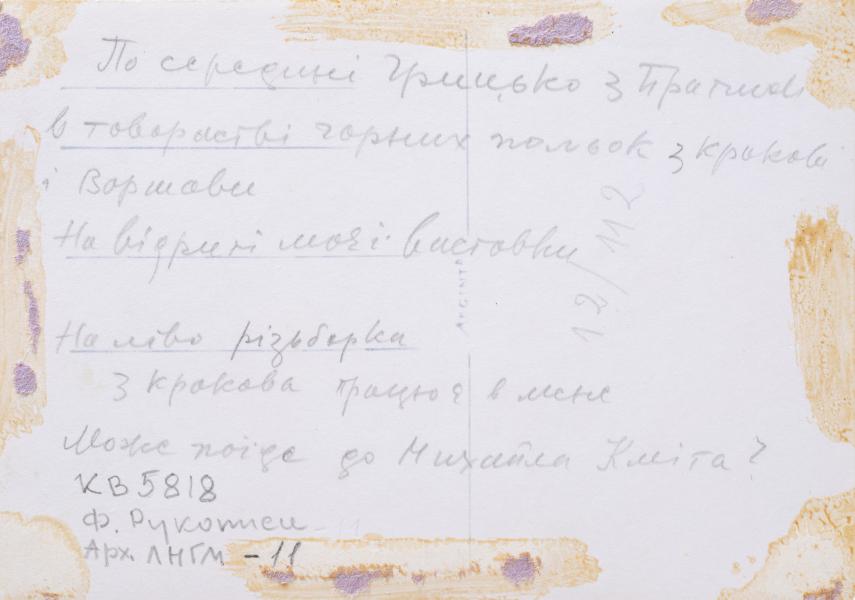 По середині Грицько з Праги
в товаристві чорних польок з кракова
і Варшави
На відкриті моєї виставки
12/112
На ліво різьбарка
з кракова працює в мене
Може поїде до Михайла Кміта?
КВ 5818
Ф. Рукописи - 11
Арх. ЛНГМ - 11